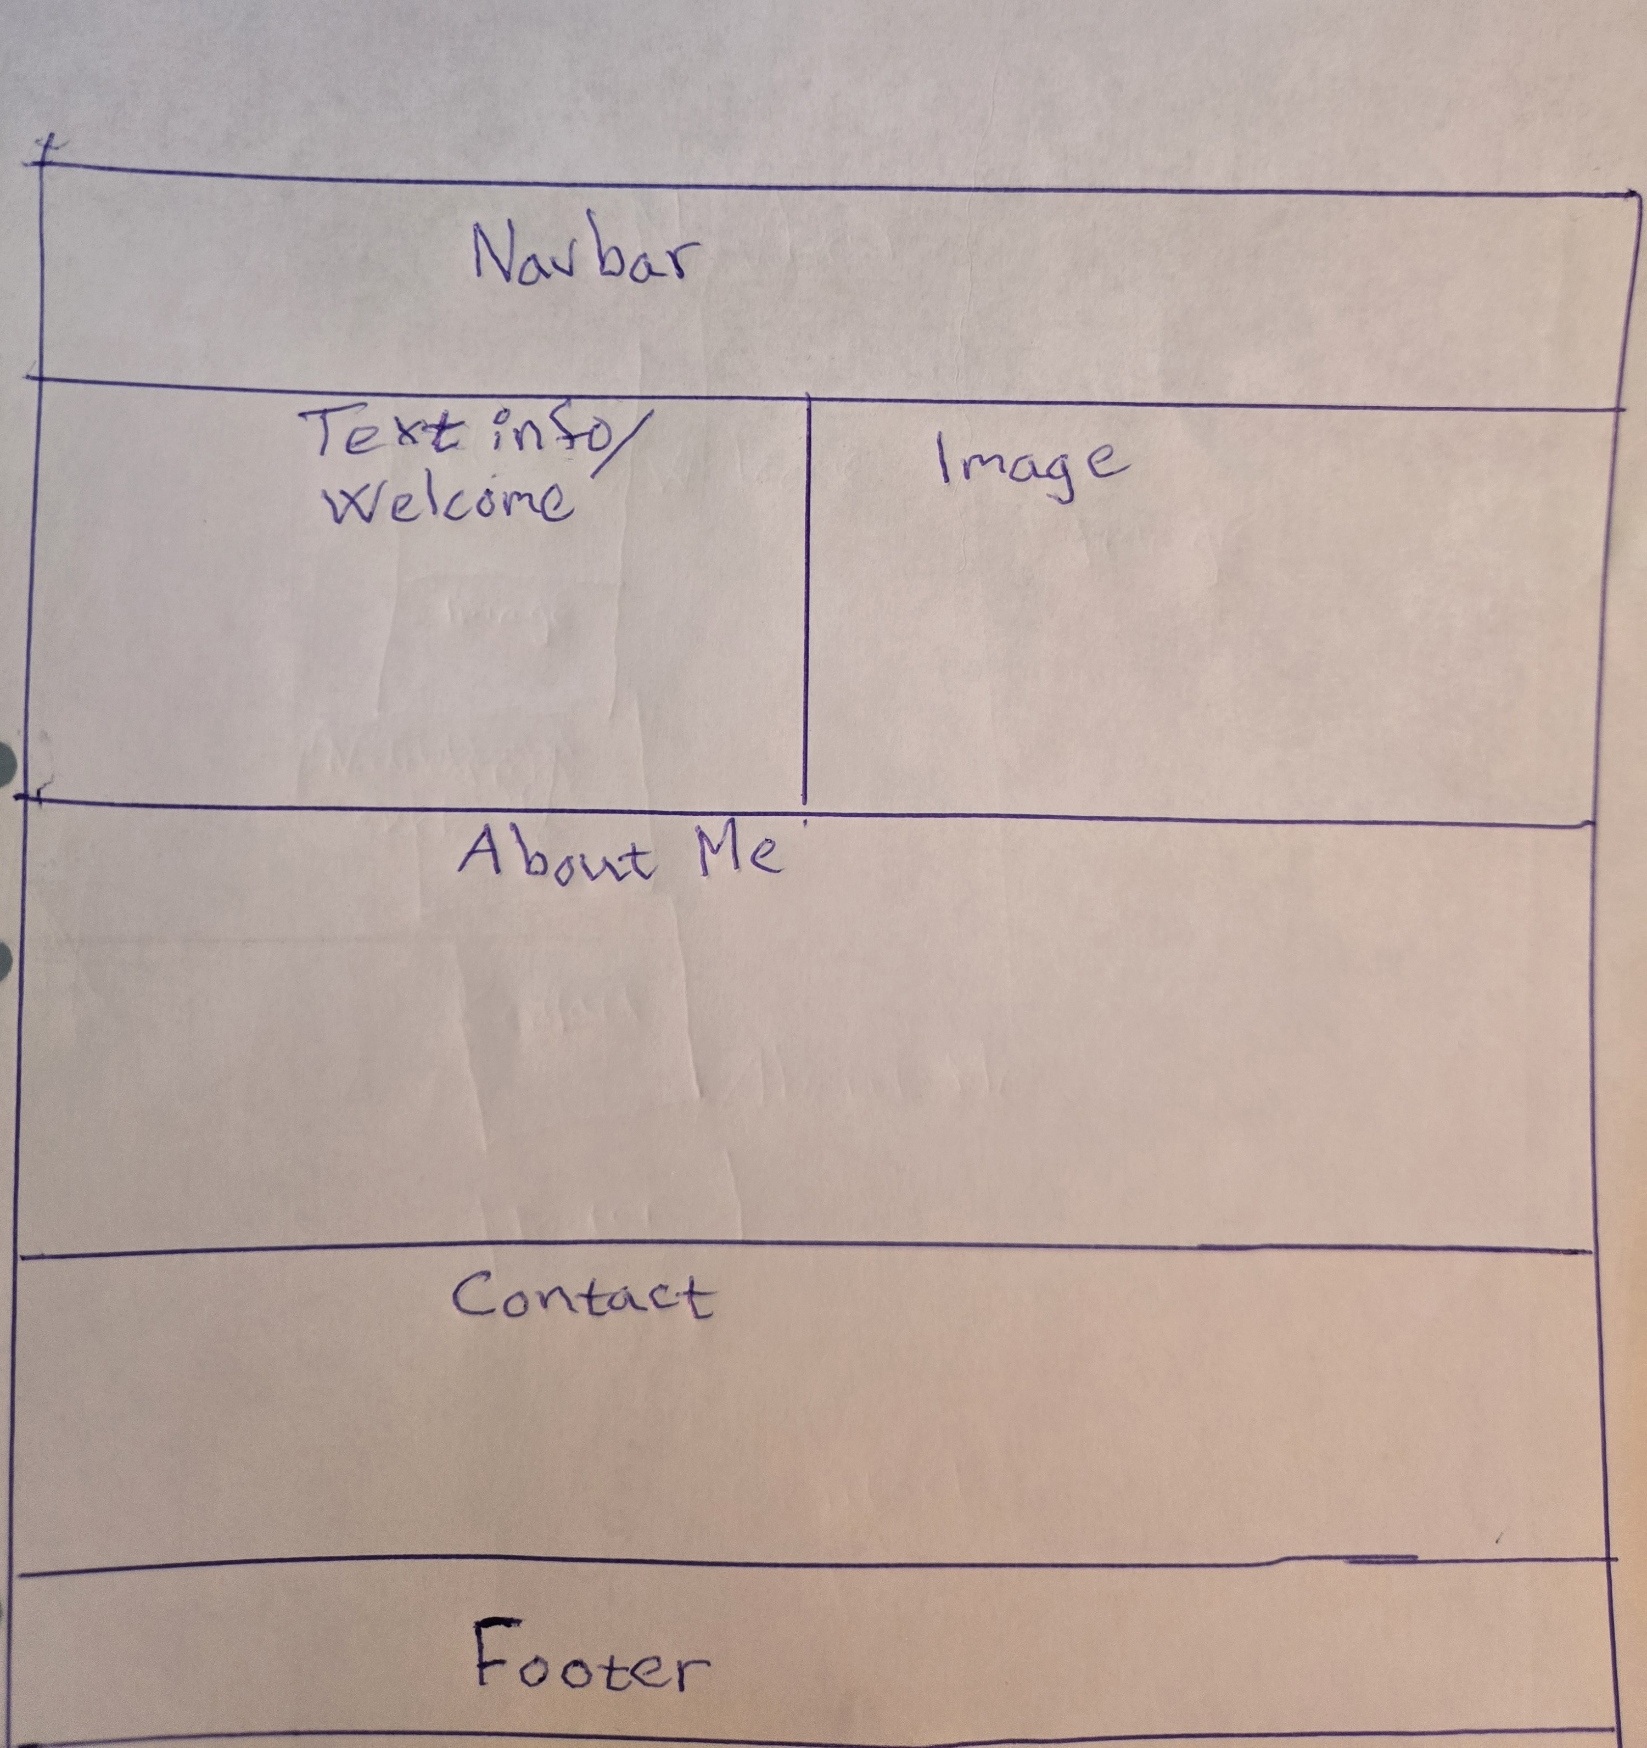 Navbar
Text info/
Welcome
Image
About Me
Contact
Footer